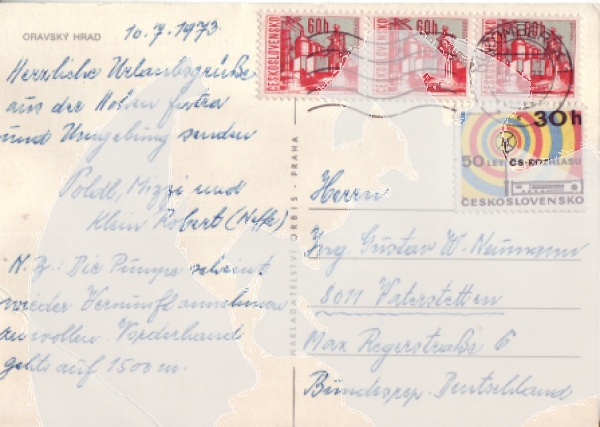 ORAVSKÝ HRAD
10.7.1973
Herzliche Urlaubsgrüße
aus der Hohen Fatra
und Umgebung senden
Poldtl, Mizzi und
Klein Robert (Neffe)
N.B.: Die Pumpe scheint
wieder Vernunft annehmen
zu wollen. Vorderhand
gehts auf 1500 m.
NAKLADATELSTVÍ ORBIS - PRAHA
ČESKOSLOVENSKO 60h
ČESKOSLOVENSKO 60h
60h
30h
50 LET ČS. ROZHLASU
ČESKOSLOVENSKO
Herrn
Ing. Gustav W. Neumann
8011 Vaterstetten
Max Regerstraße 6
Bundesrep. Deutschland